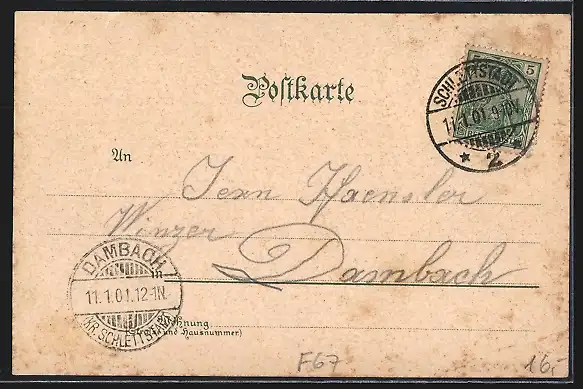 Postkarte
5
SCHLETTSTADT
11.1.01.9-10V.
* 2
An
Herrn Haensler
Winzer
in Dambach
DAMBACH
11.1.01.12-1N.
(KR. SCHLETTSTADT)
Wohnung
(Straße und Hausnummer)
F67
16,-